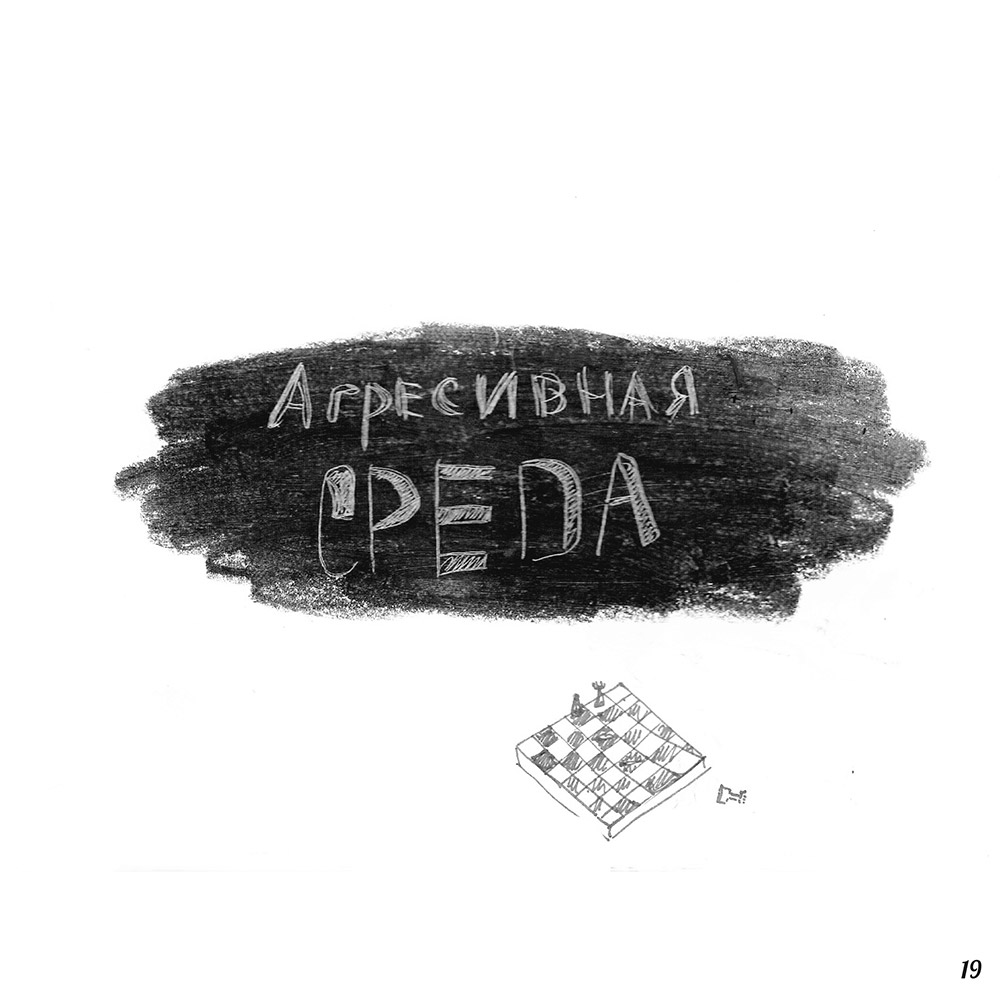 Агресивная
СРЕDА
19